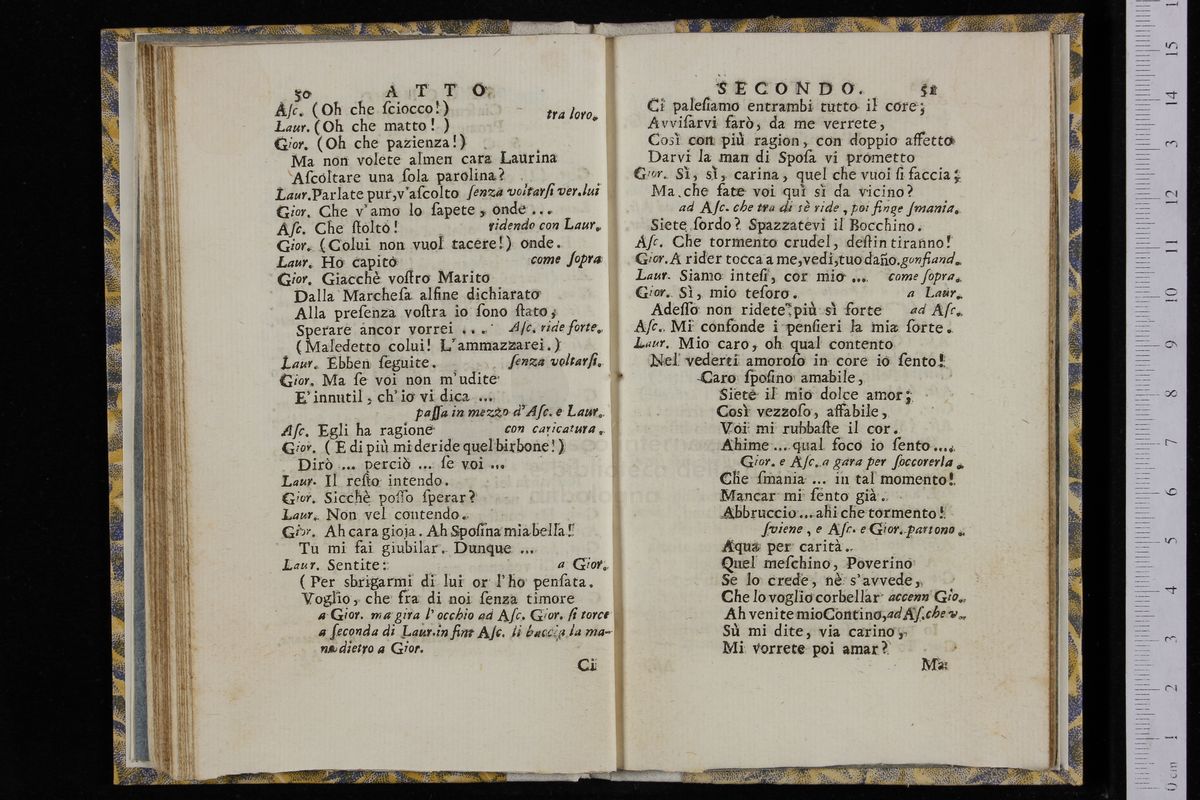 50 ATTO
Aſc. (Oh che ſciocco!)
Laur. (Oh che matto! ) tra loro.
Gior. (Oh che pazienza!)
Ma non volete almen cara Laurina
Aſcoltare una ſola parolina?
Laur. Parlate pur, v'aſcolto ſenza voltarſi ver. lui
Gior. Che v'amo lo ſapete, onde ...
Aſc. Che ſtolto! ridendo con Laur.
Gior. (Colui non vuol tacere!) onde.
Laur. Ho capito come ſopra
Gior. Giacchè voſtro Marito
Dalla Marcheſa alfine dichiarato
Alla preſenza voſtra io ſono ſtato,
Sperare ancor vorrei ... Aſc. ride forte.
(Maledetto colui! L'ammazzarei.)
Laur. Ebben ſeguite. ſenza voltarſi.
Gior. Ma ſe voi non m'udite
E' innutil, ch'io vi dica ...
paſſa in mezzo d'Aſc. e Laur.
Aſc. Egli ha ragione con caricatura.
Gior. ( E di più mi deride quel birbone!)
Dirò ... perciò ... ſe voi ...
Laur. Il reſto intendo.
Gior. Sicchè poſſo ſperar?
Laur. Non vel contendo.
Gior. Ah cara gioja. Ah Spoſina mia bella!
Tu mi fai giubilar. Dunque ...
Laur. Sentite: a Gior.
(Per sbrigarmi di lui or l'ho penſata.
Voglio, che fra di noi ſenza timore
a Gior. ma gira l'occhio ad Aſc. Gior. ſi torce
a ſeconda di Laur. in fine Aſc. li baccia la ma-
no dietro a Gior.
Ci
SECONDO. 51
Ci paleſiamo entrambi tutto il core;
Avviſarvi farò, da me verrete,
Così con più ragion, con doppio affetto
Darvi la man di Spoſa vi prometto
Gior. Sì, sì, carina, quel che vuoi ſi faccia;
Ma che fate voi quì sì da vicino?
ad Aſc. che tra di sè ride, poi finge ſmania.
Siete ſordo? Spazzatevi il Bocchino.
Aſc. Che tormento crudel, deſtin tiranno!
Gior. A rider tocca a me, vedi, tuo dañо. gonfiand.
Laur. Siamo inteſi, cor mio ... come ſopra.
Gior. Sì, mio teſoro. a Laur.
Adeſſo non ridete più sì forte ad Aſc.
Aſc. Mi confonde i penſieri la mia ſorte.
Laur. Mio caro, oh qual contento
Nel vederti amoroſo in core io ſento!
Caro ſpoſino amabile,
Siete il mio dolce amor;
Così vezzoſo, affabile,
Voi mi rubbaſte il cor.
Ahime ... qual foco io ſento ....
Gior. e Aſc. a gara per ſoccorerla.
Che ſmania ... in tal momento!
Mancar mi ſento già.
Abbruccio ... ahi che tormento!
ſviene, e Aſc. e Gior. partono.
Aqua per carità.
Quel meſchino, Poverino
Se lo crede, nè s'avvede,
Che lo voglio corbellar accenn Gio.
Ah venite mio Contino, ad Aſ. che v.
Sù mi dite, via carino,
Mi vorrete poi amar?
Ma